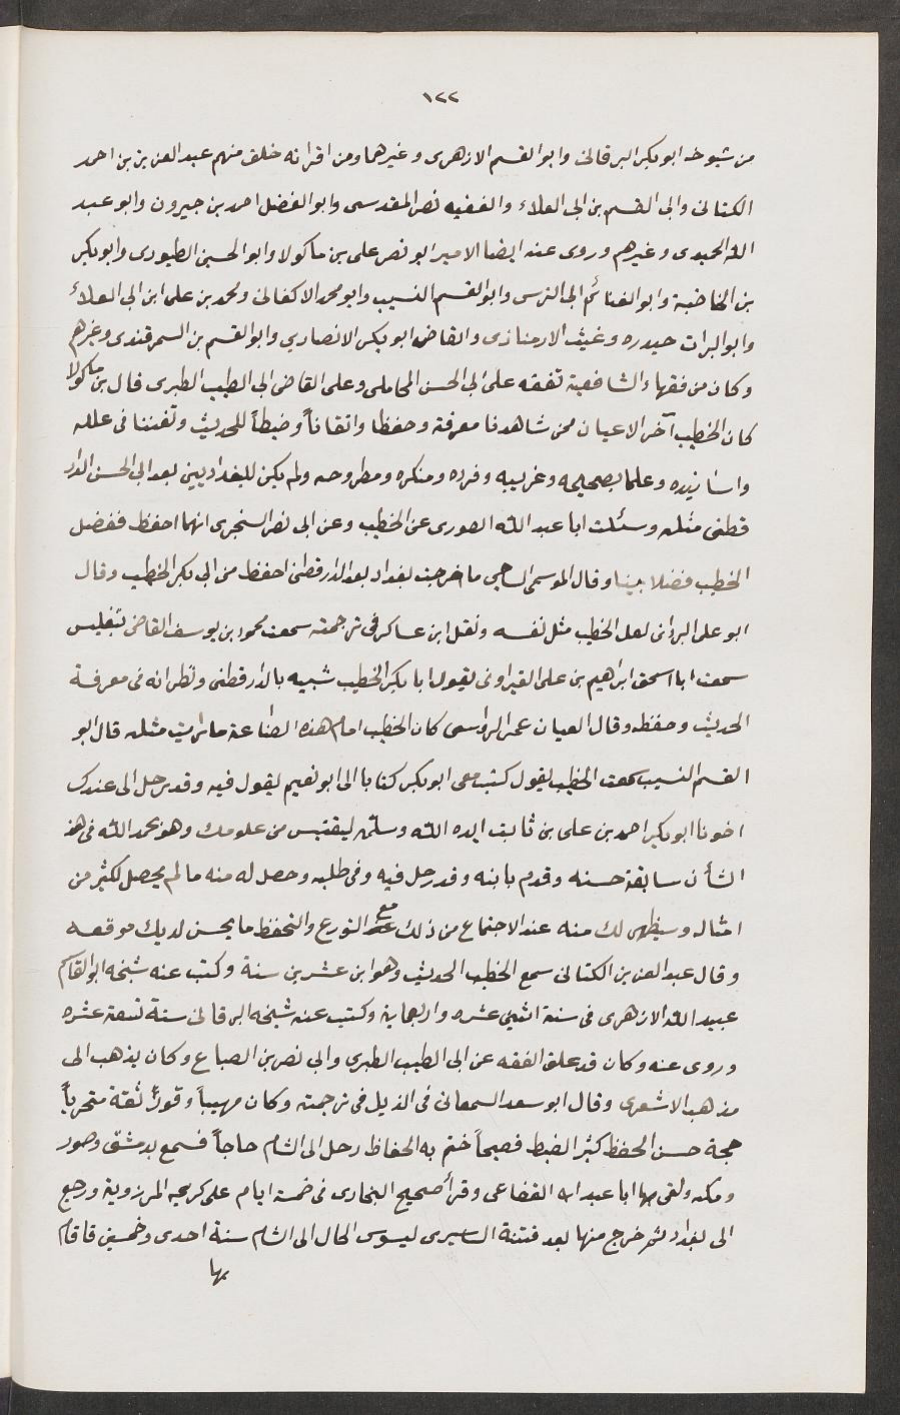 ١٢٢
من شيوخه ابو بكر البرقانى وابو القسم الازهرى وغيرهما ومن اقرانه خلق منهم عبد العزيز بن احمد
الكتانى وابى القسم بن ابى العلاء والفقيه نصر المقدسى وابو الفضل احمد بن جيرون وابو عبد
الله الحميدى وغيرهم وروى عنه ايضا الامير ابو نصر على بن ماكولا وابو الحسين الطيورى وابو بكر
بن الخاضبة وابو الغنائم ابى النرسى وابو القسم النسيب وابو محمد الاكفانى ومحمد بن على ابن ابى العلاء
وابو البرات حيدره وغيث الارمنازى والقاضى ابو بكر الانصاري وابو القسم بن السمرقندى وغيرهم
وكان من فقهاء الشافعية تفقه على ابى الحسن المحاملى وعلى القاضى ابى الطيب الطبرى قال بن ماكولا
كان الخطيب آخر الاعيان ممن شاهدنا معرفة وحفظا واتقاناً وضبطاً للحديث وتفننا فى علله
واسانيده وعلما بصحيحه وغريبه وفرده ومنكره ومطروحه ولم يكن للبغداديين بعد ابى الحسن الدار
قطنى مثله وسئلت ابا عبد الله الصورى عن الخطيب وعن ابى نصر السنجرى ايهما احفظ ففضل
الخطيب فضلا بينا وقال الموسمى الساجى ما خرجت بغداد بعد الدارقطنى احفظ من ابى بكر الخطيب وقال
ابو على البردانى لعل الخطيب مثل نفسه ونقل ابن عساكر فى ترجمته سمعت محمود بن يوسف القاضى بتفليس
سمعت ابا اسحق ابراهيم بن على الفيراونى يقول ابا بكر الخطيب شبيه بالدارقطنى ونظرانه فى معرفة
الحديث وحفظه وقال العيان عمر الرواسى كان الخطيب امام هذه الصناعة ما رايت مثله قال ابو
القسم النسيب سمعت الخطيب يقول كتب معى ابو بكر كتابا الى ابو نعيم يقول فيه وقد رحل الى عندك
اخونا ابو بكر احمد بن على بن ثابت ايده الله وسلمه ليقتبس من علومك وهو بحمد الله فى هذ
الشأن سابقة حسنه وقدم بابنه وقد رحل فيه وفى طلبه وحصل له منه ما لم يحصل لكثير من
امثاله وسيظهر لك منه عند الاجتماع من ذلك مع التورع والتحفظ ما يحسن لديك موقعه
وقال عبد العزيز الكتانى سمع الخطيب الحديث وهو ابن عشرين سنة وكتب عنه شيخه ابو القاسم
عبيد الله الازهرى فى سنة اثنى عشره واربعماية وكتب عنه شيخه البرقانى سنة تسعة عشره
وروى عنه وكان قد علق الفقه عن ابى الطيب الطبرى وابى نصر بن الصباغ وكان يذهب الى
مذهب الاشعرى وقال ابو سعد السمعانى فى الذيل فى ترجمته وكان مهيباً وقوراً ثقة متحرياً
حجة حسن الحفظ كثير الضبط فصيحاً ختم به الحفاظ رحل الى الشام حاجاً فسمع بدمشق وصور
ومكه ولقى بها ابا عبد الله القضاعى وقرأ صحيح البخارى فى خمسة ايام على كريمه المرزوية ورجع
الى بغداد ثم خرج منها بعد فتنة البساسيرى ليسوس الحال الى الشام سنة احدى وخمسين فاقام
بها